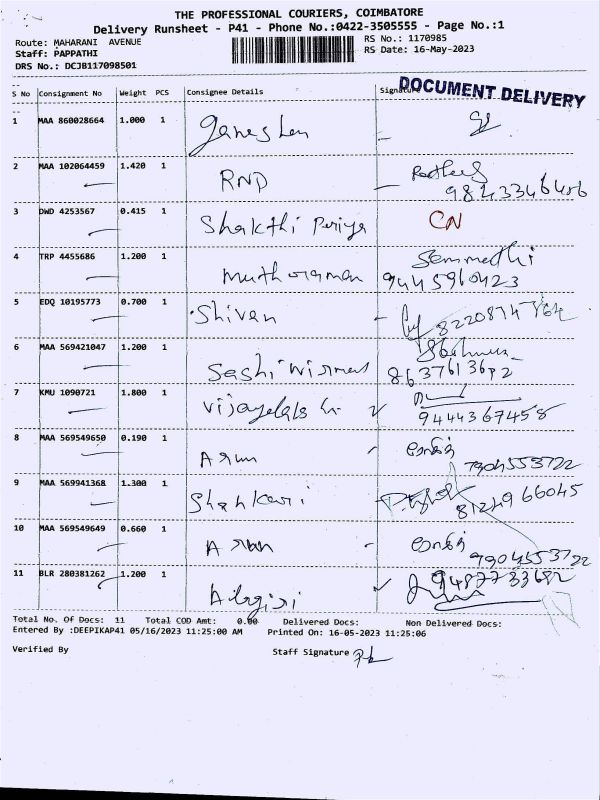 THE PROFESSIONAL COURIERS, COIMBATORE
Delivery Runsheet - P41 - Phone No.:0422-3505555 - Page No.:1
Route: MAHARANI AVENUE
RS No.: 1170985
Staff: PAPPATHI
RS Date: 16-May-2023
DRS No.: DCJB117098501
DOCUMENT DELIVERY
S No Consignment No Weight PCS Consignee Details Signature
1 MAA 860028664 1.000 1 Ganeshan
2 MAA 102064459 1.420 1 RND
3 DWD 4253567 0.415 1 Shakthi Periya CN
4 TRP 4455686 1.200 1 Muthuraman 9445960423
5 EDQ 10195773 0.700 1 Shivan
6 MAA 569421047 1.200 1
7 KMU 1090721 1.800 1 9444367458
8 MAA 569549650 0.190 1 Arun
9 MAA 569941368 1.300 1 Shankari 8124966045
10 MAA 569549649 0.660 1 Arun
11 BLR 280381262 1.200 1
Total No. Of Docs: 11 Total COD Amt: 0.00 Delivered Docs: Non Delivered Docs:
Entered By :DEEPIKAP41 05/16/2023 11:25:00 AM Printed On: 16-05-2023 11:25:06
Verified By Staff Signature